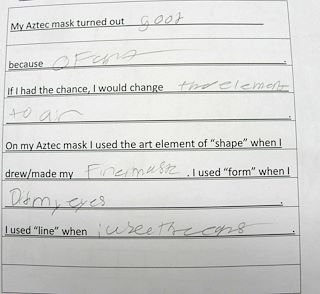 My Aztec mask turned out good
because
If I had the chance, I would change the element
to air
On my Aztec mask I used the art element of "shape" when I
drew/made my . I used "form" when I
Did my eyes
I used "line" when